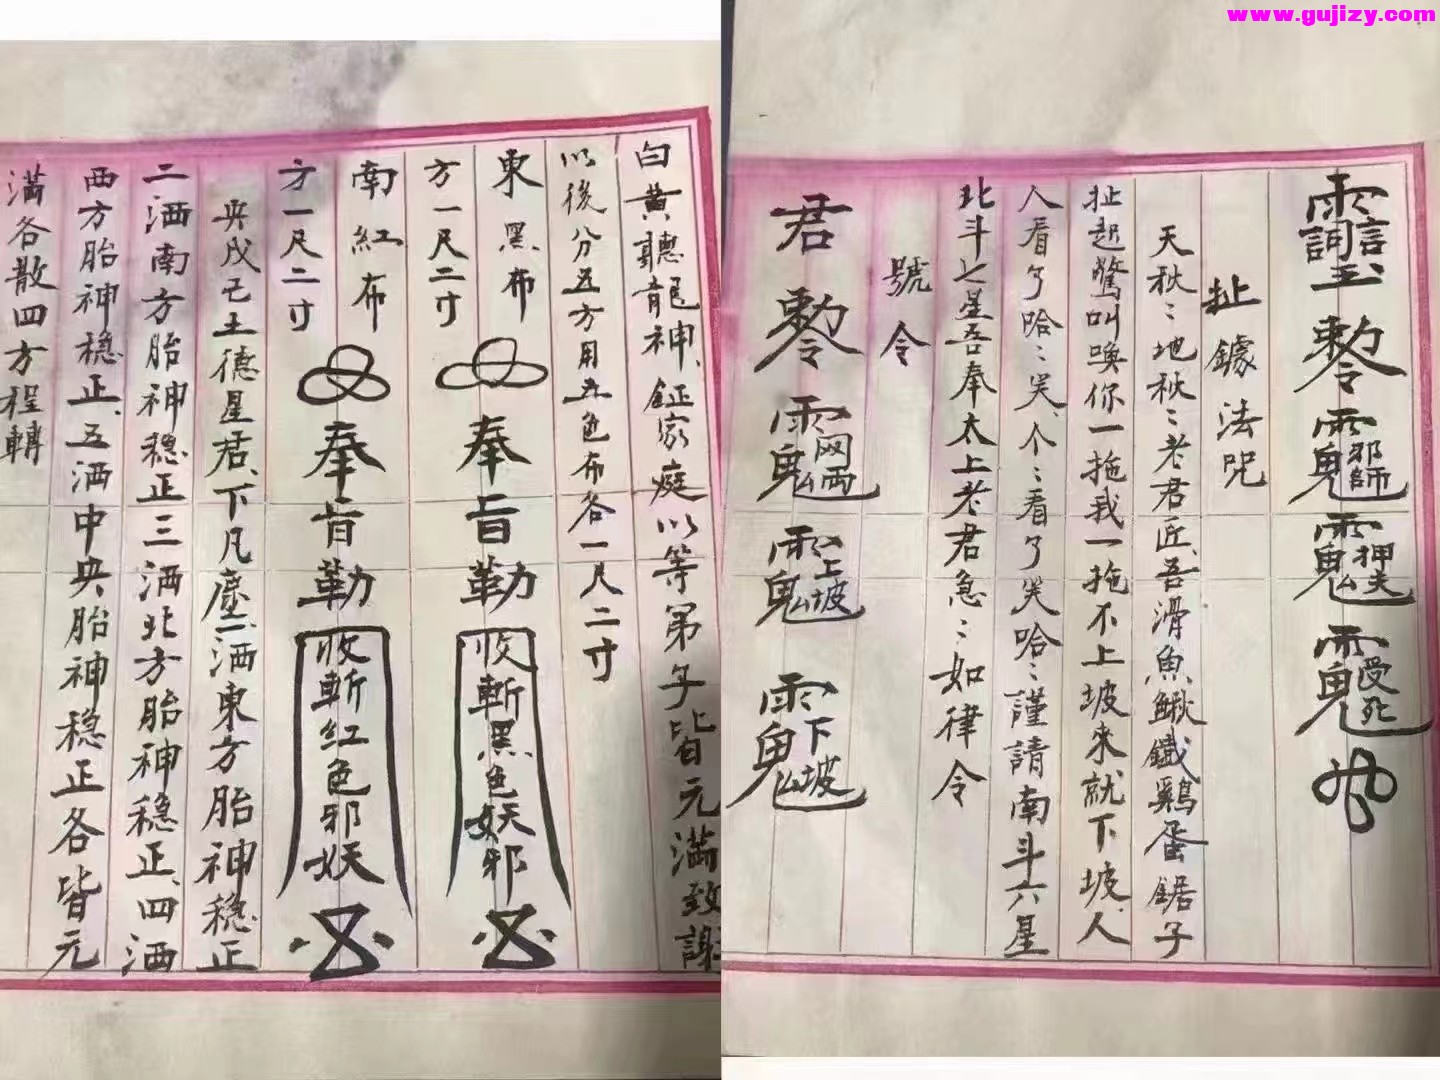 www.gujizy.com
扯鐻法咒
天秋〻地秋〻老君匠、吾滑魚鰍鐵鷄蛋鋸子
扯起驚叫喚你一拖我一拖不上坡来就下坡、人
人看了哈〻笑、个〻看了笑哈〻謹請南斗六星
北斗七星吾奉太上老君急〻如律令
號令
君
白黄聽龍神、鉦家庭以等第子皆元满致謝
以後分五方用五色布各一尺二寸
東黑布 奉旨勒 收斬黑色妖邪
方一尺二寸
南紅布 奉旨勒 收斬红色邪妖
方一尺二寸
央戊己土德星君、下凡塵、二洒東方胎神穏正
二洒南方胎神穏正三洒北方胎神穏正、四洒
西方胎神穏正、五洒中央胎神穏正各皆元
满各散四方程轉